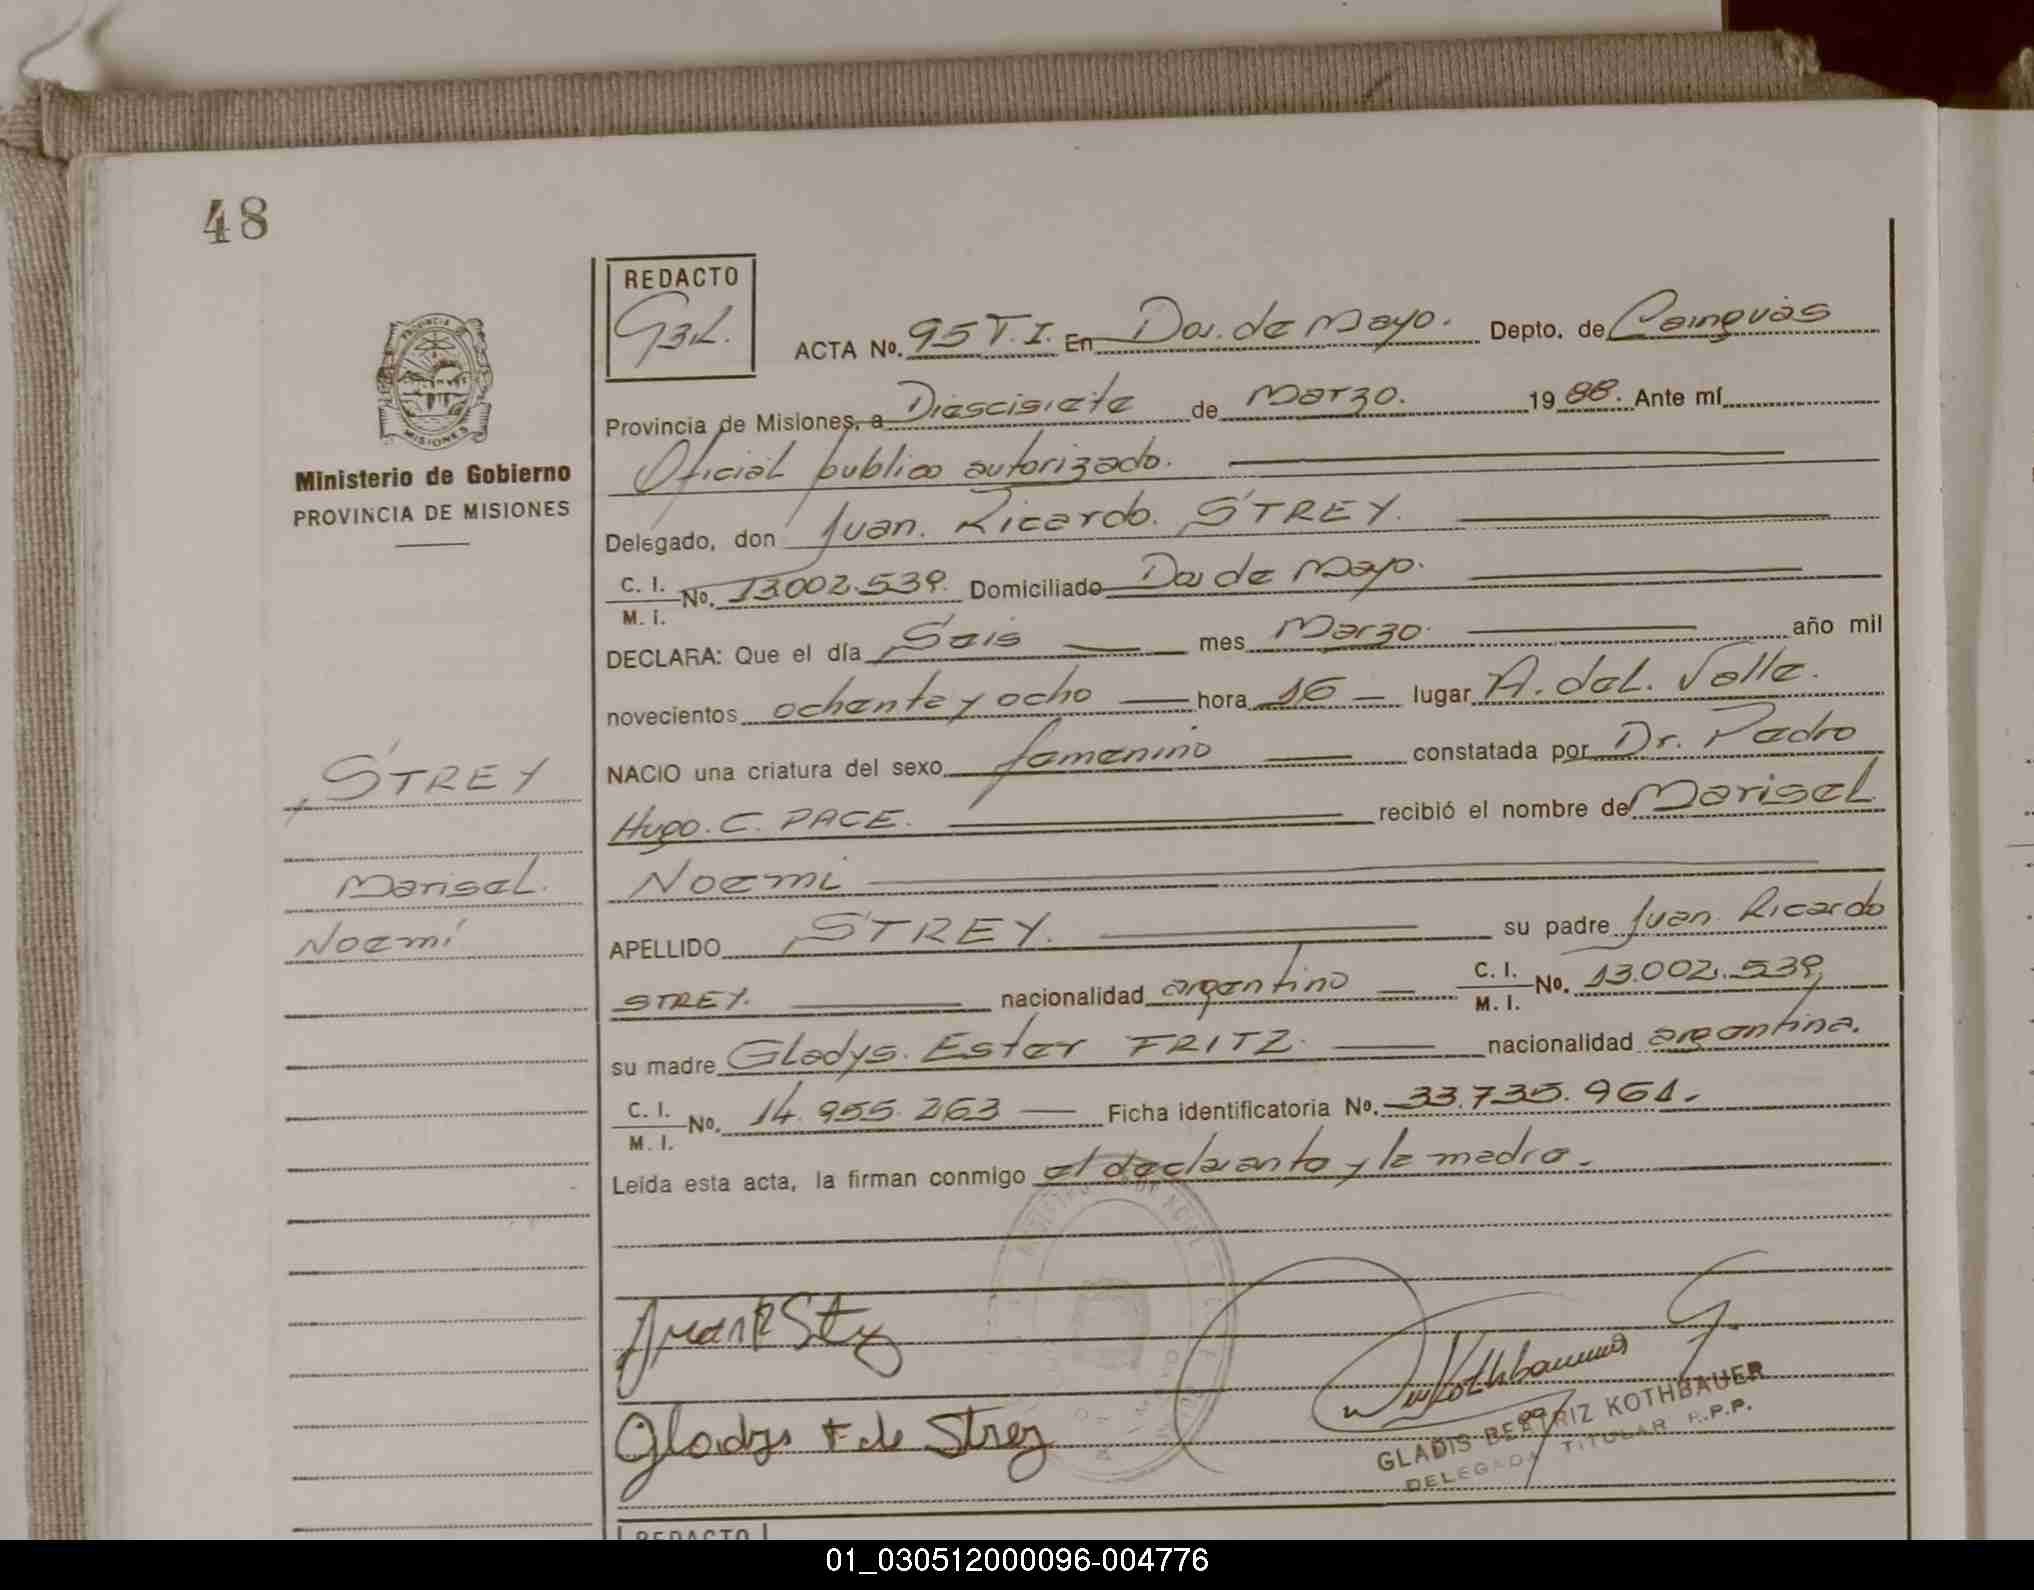 48
REDACTO
GBK.
PROVINCIA
MISIONES
Ministerio de Gobierno
PROVINCIA DE MISIONES
ACTA No. 95 T.I. En Dos. de Mayo. Depto. de Cainguás
Provincia de Misiones, a Diescisiete de Marzo. 19 88. Ante mí
Oficial publico autorizado.
Delegado, don Juan. Ricardo. STREY.
C. I. / M. I. No. 13.002.539. Domiciliado Dos de Mayo.
DECLARA: Que el día Seis mes Marzo. año mil
novecientos ochenta y ocho hora 16 lugar A. del. Valle.
NACIO una criatura del sexo femenino constatada por Dr. Pedro
Hugo. C. PACE. recibió el nombre de Marisel
Noemi
APELLIDO STREY. su padre Juan Ricardo
STREY. nacionalidad argentino C. I. / M. I. No. 13.002.539
su madre Gladys. Ester FRITZ. nacionalidad argentina.
C. I. / M. I. No. 14.955.263 Ficha identificatoria No. 33.735.961.
Leída esta acta, la firman conmigo el declarante y la madre.
STREY
Marisel.
Noemí
Juan R Strey
Gladys F. de Strey
Kothbauer G.
GLADIS BEATRIZ KOTHBAUER
DELEGADA TITULAR R.P.P.
REDACTO
01_030512000096-004776